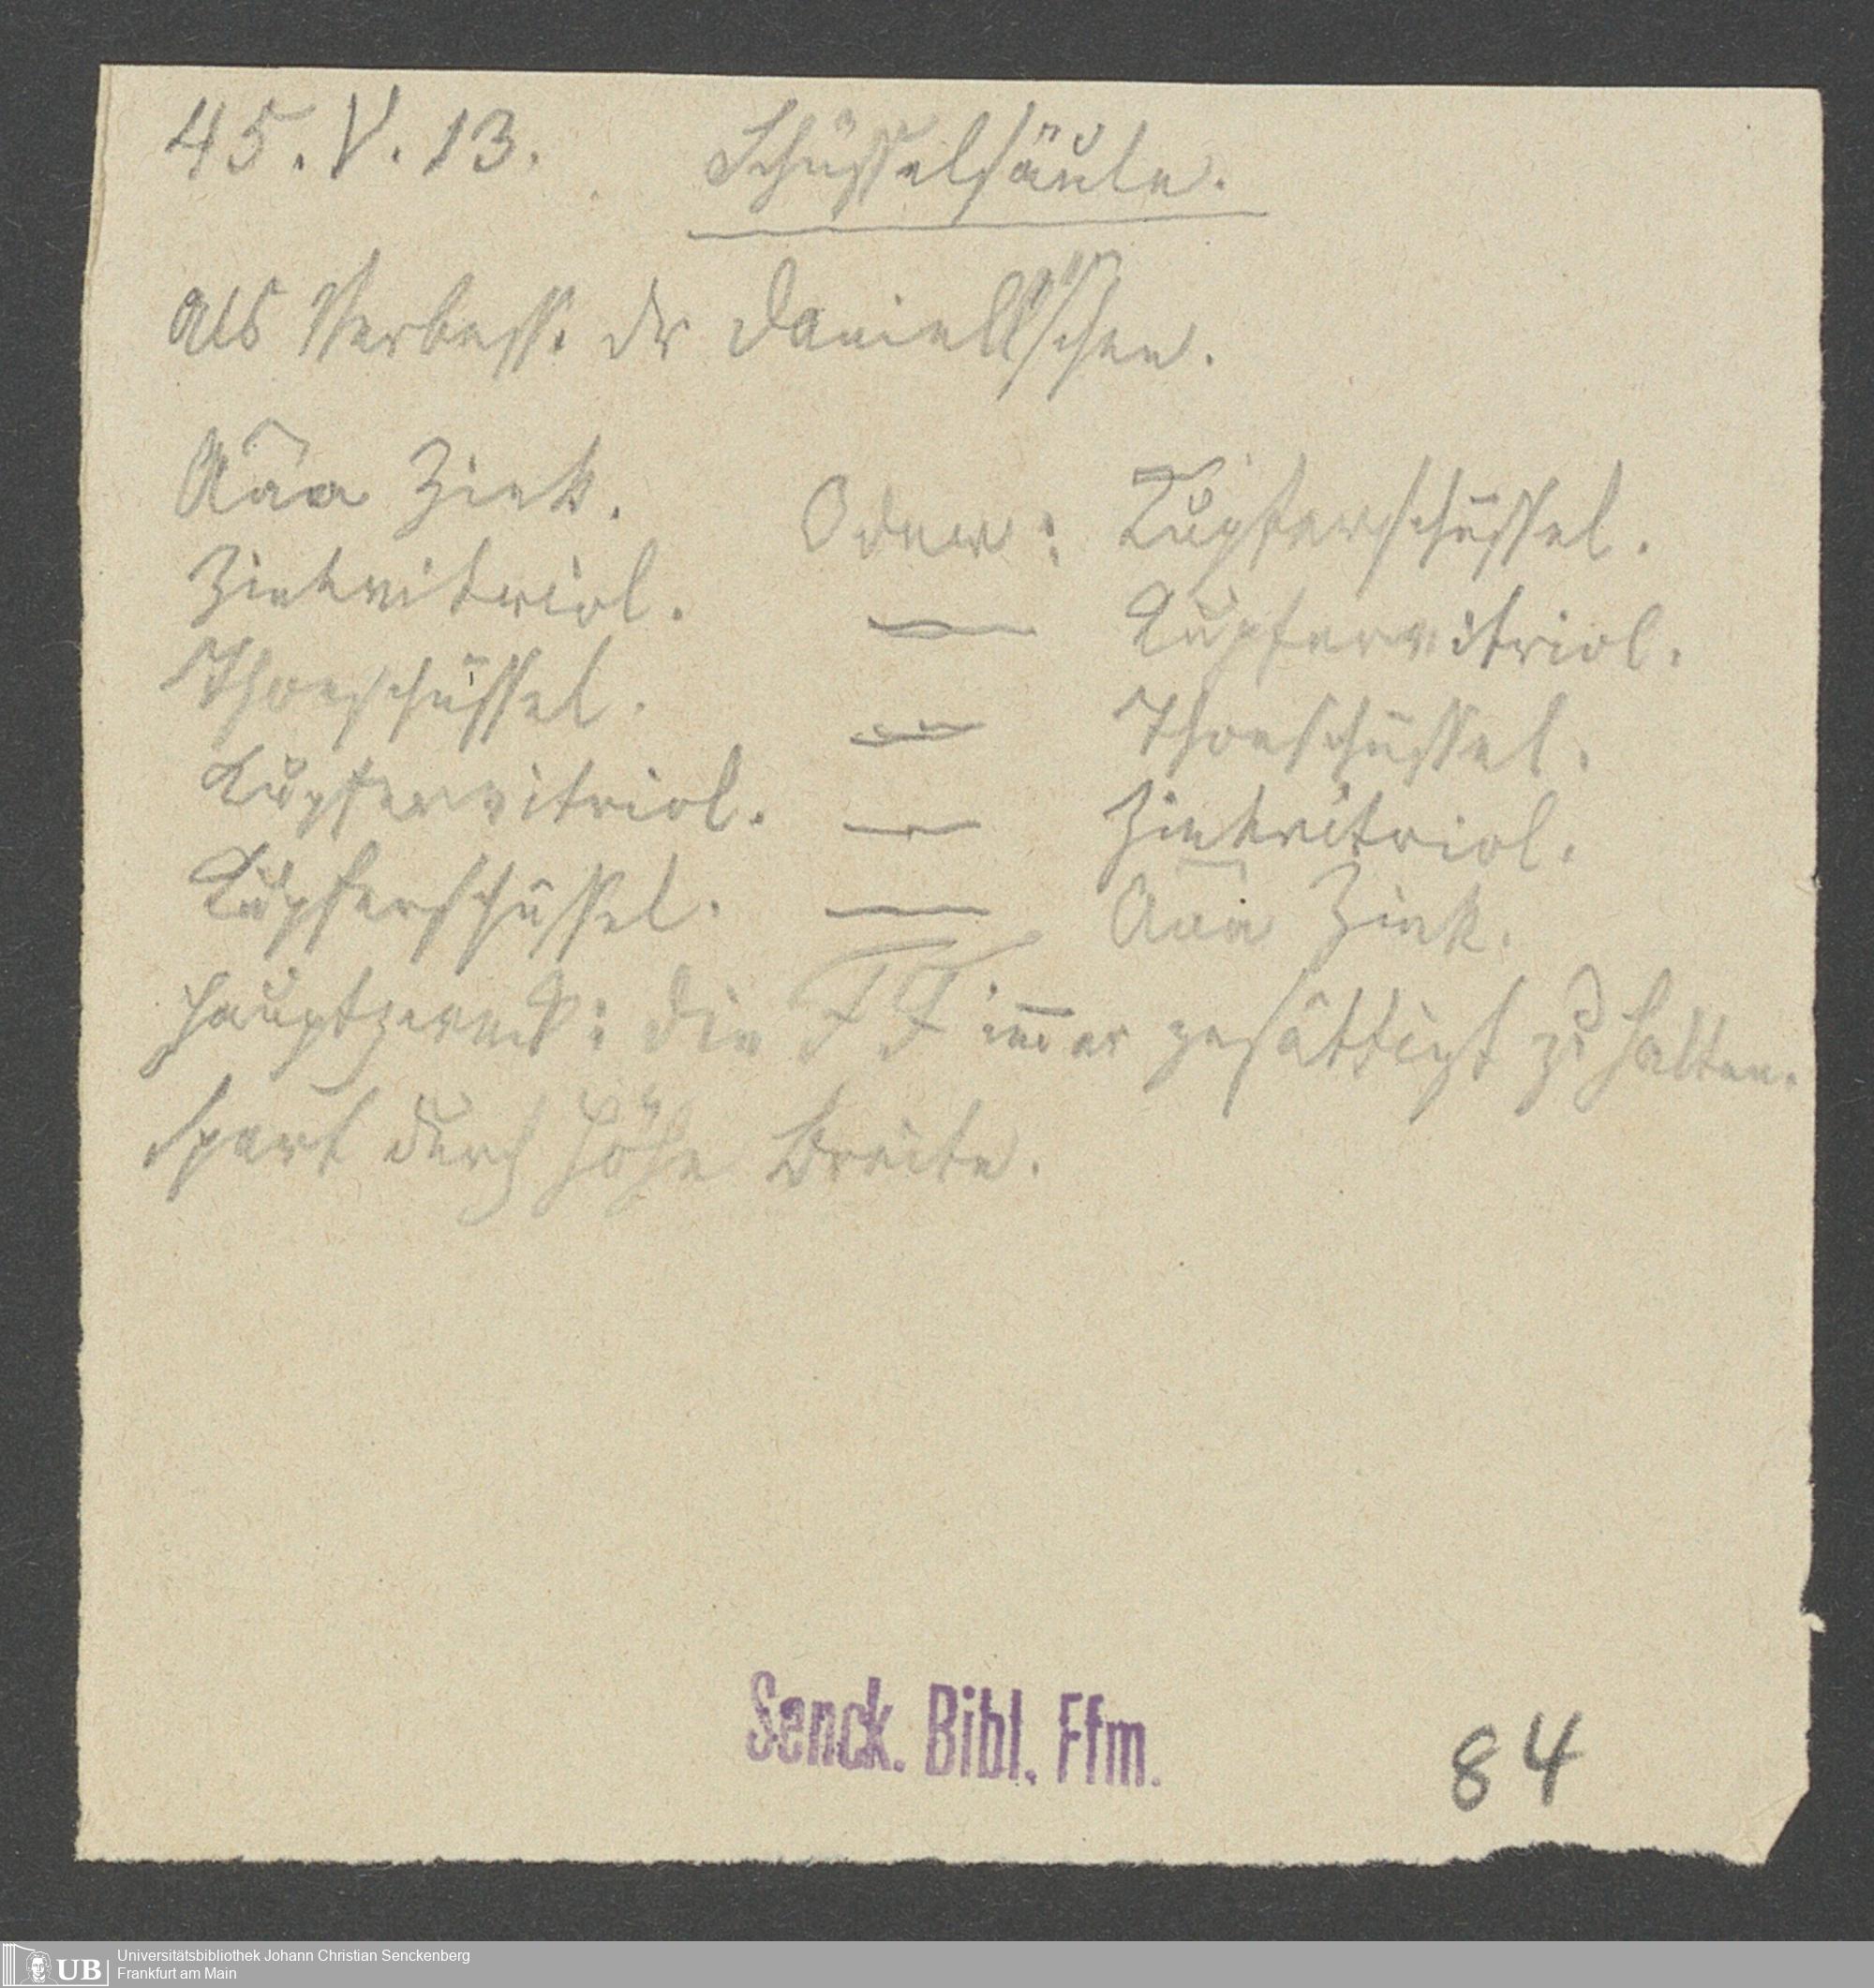 45. V. 13. Schüsselsäule.
als Verbess. dr Daniell'schen.
Aãa Zink. Oder: Kupferschüssel.
Zinkvitriol. — Kupfervitriol.
Thonschüssel. — Thonschüssel.
Kupfervitriol. — Zinkvitriol.
Kupferschüssel. — Aãa Zink.
Hauptzweck: die FF im̅er gesättigt zu halten.
Spart durch Höhe Breite.
Senck. Bibl. Ffm.
84
UB Universitätsbibliothek Johann Christian Senckenberg
Frankfurt am Main